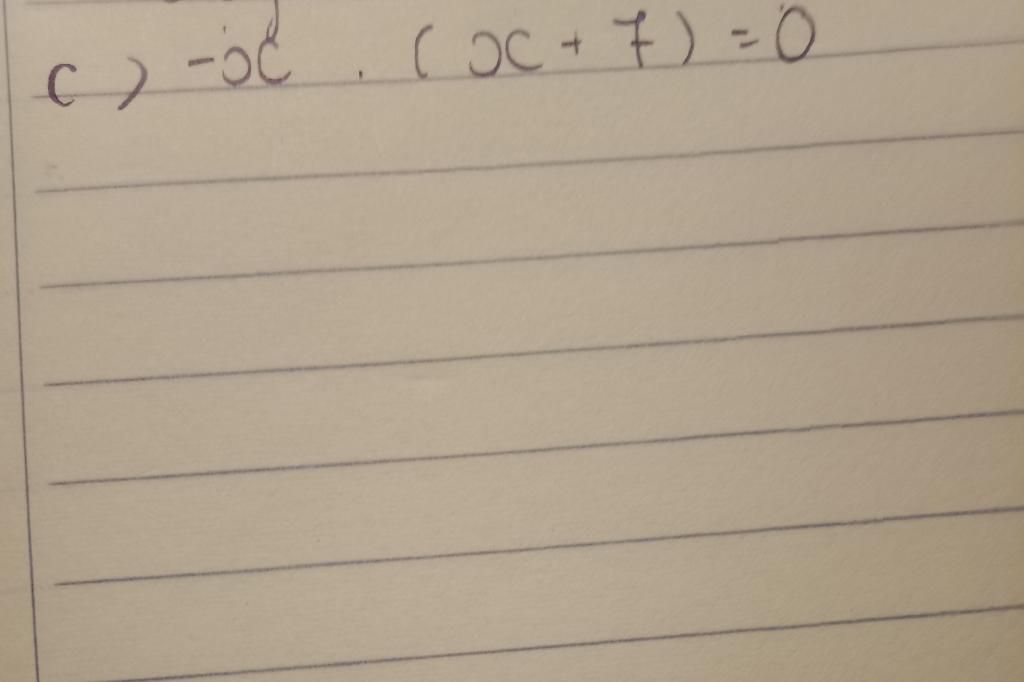 c) -x . (x + 7) = 0